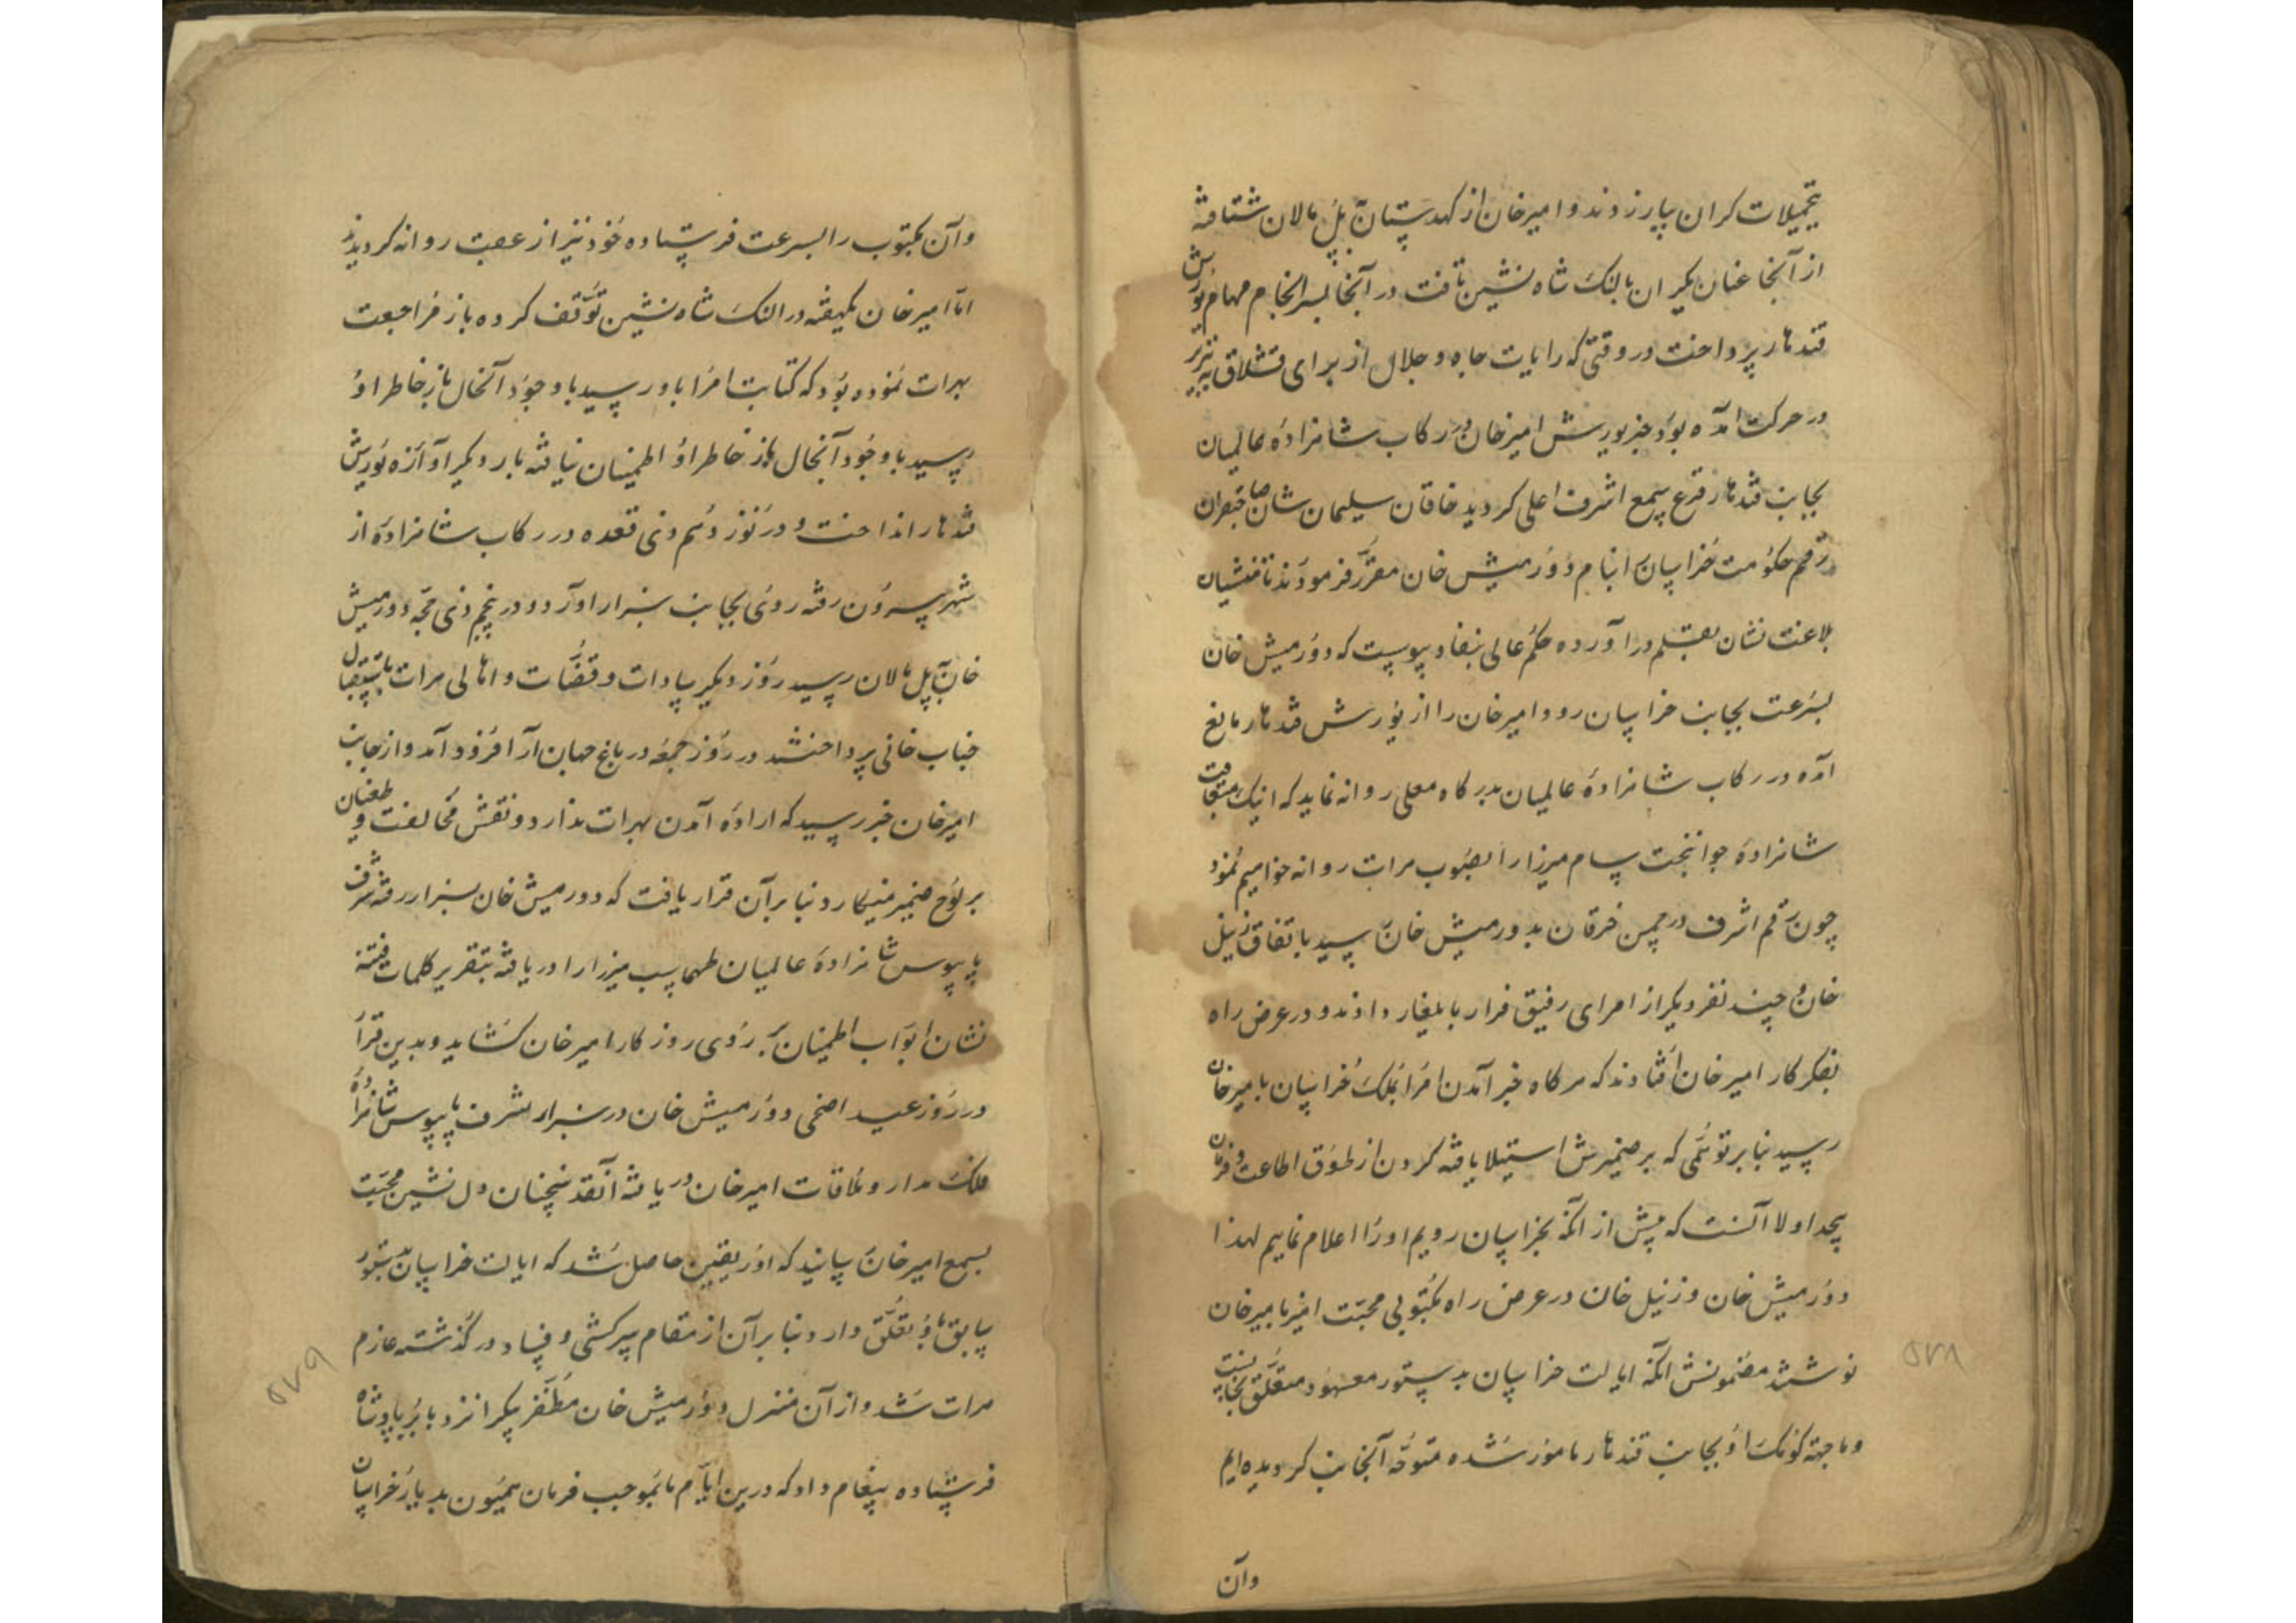 بتحمیلات کران بپارزدند و امیرخان از کهدستان بپل مالان شتافته
از آنجا عنان یکران بالنک شاه نشین تافت در آنجا بسرانجام مهام یورش
قندهار پرداخت در وقتی که رایات جاه و جلال از برای قشلاق به تبریز
در حرکت آمده بود خبر یورش امیرخان در رکاب شاهزادهٔ عالمیان
بجانب قندهار قرع سمع اشرف اعلی کردید خاقان سلیمان شان صاحبقران
رقم حکومت خراسان بنام دورمیش خان مقرر فرمودند تا منشیان
بلاغت نشان بقلم در آورده حکم عالی بنفاد پیوست که دورمیش خان
بسرعت بجانب خراسان رود و امیرخان را از یورش قندهار مانع
آمده در رکاب شاهزادهٔ عالمیان بدرکاه معلی روانه نماید که اینک متعاقب
شاهزادهٔ جوانبخت سام میرزا را بصوب هرات روانه خواهیم نمود
چون رقم اشرف در چمن خرقان بدورمیش خان رسید باتفاق زینل
خان و چند نفر دیکر از امرای رفیق قرار بایلغار دادند و در عرض راه
بفکر کار امیرخان افتادند که هرکاه خبر آمدن امرا بملک خراسان بامیرخان
رسید بنا بر توهمی که بر ضمیرش استیلا یافته کردن از طوق اطاعت و فرمان
پیچد اولا آنست که پیش از آنکه بخراسان رویم او را اعلام نماییم لهذا
دورمیش خان و زینل خان در عرض راه مکتوبی محبت امیز بامیرخان
نوشتند مضمونش آنکه ایالت خراسان بدستور معهود متعلق بجانب تست
و ما بجهة کومک او بجانب قندهار مامور شده متوجه آنجانب کردیده ایم
وآن
وآن مکتوب را بسرعت فرستاده خود نیز از عقب روانه کردیدند
اما امیرخان یکهفته در النک شاه نشین توقف کرده باز مراجعت
بهرات نموده بود که کتابت امرا باو رسید با وجود آنحال باز خاطر او
رسید با وجود آنحال باز خاطر او اطمینان نیافته بار دیکر آوازه یورش
قندهار انداخت و در نوزدهم ذی قعده در رکاب شاهزاده از
شهر بیرون رفته روی بجانب سبزار آورد و در پنجم ذی حجه دورمیش
خان بپل مالان رسید روز دیکر سادات و قضات و اهالی هرات باستقبال
جناب خانی پرداختند در روز جمعه در باغ جهان آرا فرود آمد و از جانب
امیرخان خبر رسید که ارادهٔ آمدن بهرات ندارد و نقش مخالفت و طغیان
بر لوح ضمیر مینکارد بنا برآن قرار یافت که دورمیش خان بسبزار رفته شرف
پابوس شاهزادهٔ عالمیان طهماسب میرزا را دریافته بتقریر کلمات فتنه
نشان ابواب اطمینان بر روی روزکار امیرخان کشاید و بدین قرار
در روز عید اضحی دورمیش خان در سبزار بشرف پابوس شاهزاده
فلک مدار و ملاقات امیرخان دریافته آنقدر سخنان دل نشین محبت
بسمع امیرخان رسانید که او را یقین حاصل شد که ایالت خراسان بدستور
سابق باو تعلق دارد بنا برآن از مقام سرکشی و فساد در کذشته عازم
هرات شد و از آن منزل دورمیش خان مظفر بیکرا نزد بابر پادشاه
فرستاده پیغام داد که درین ایام ما بموجب فرمان همیون بدیار خراسان